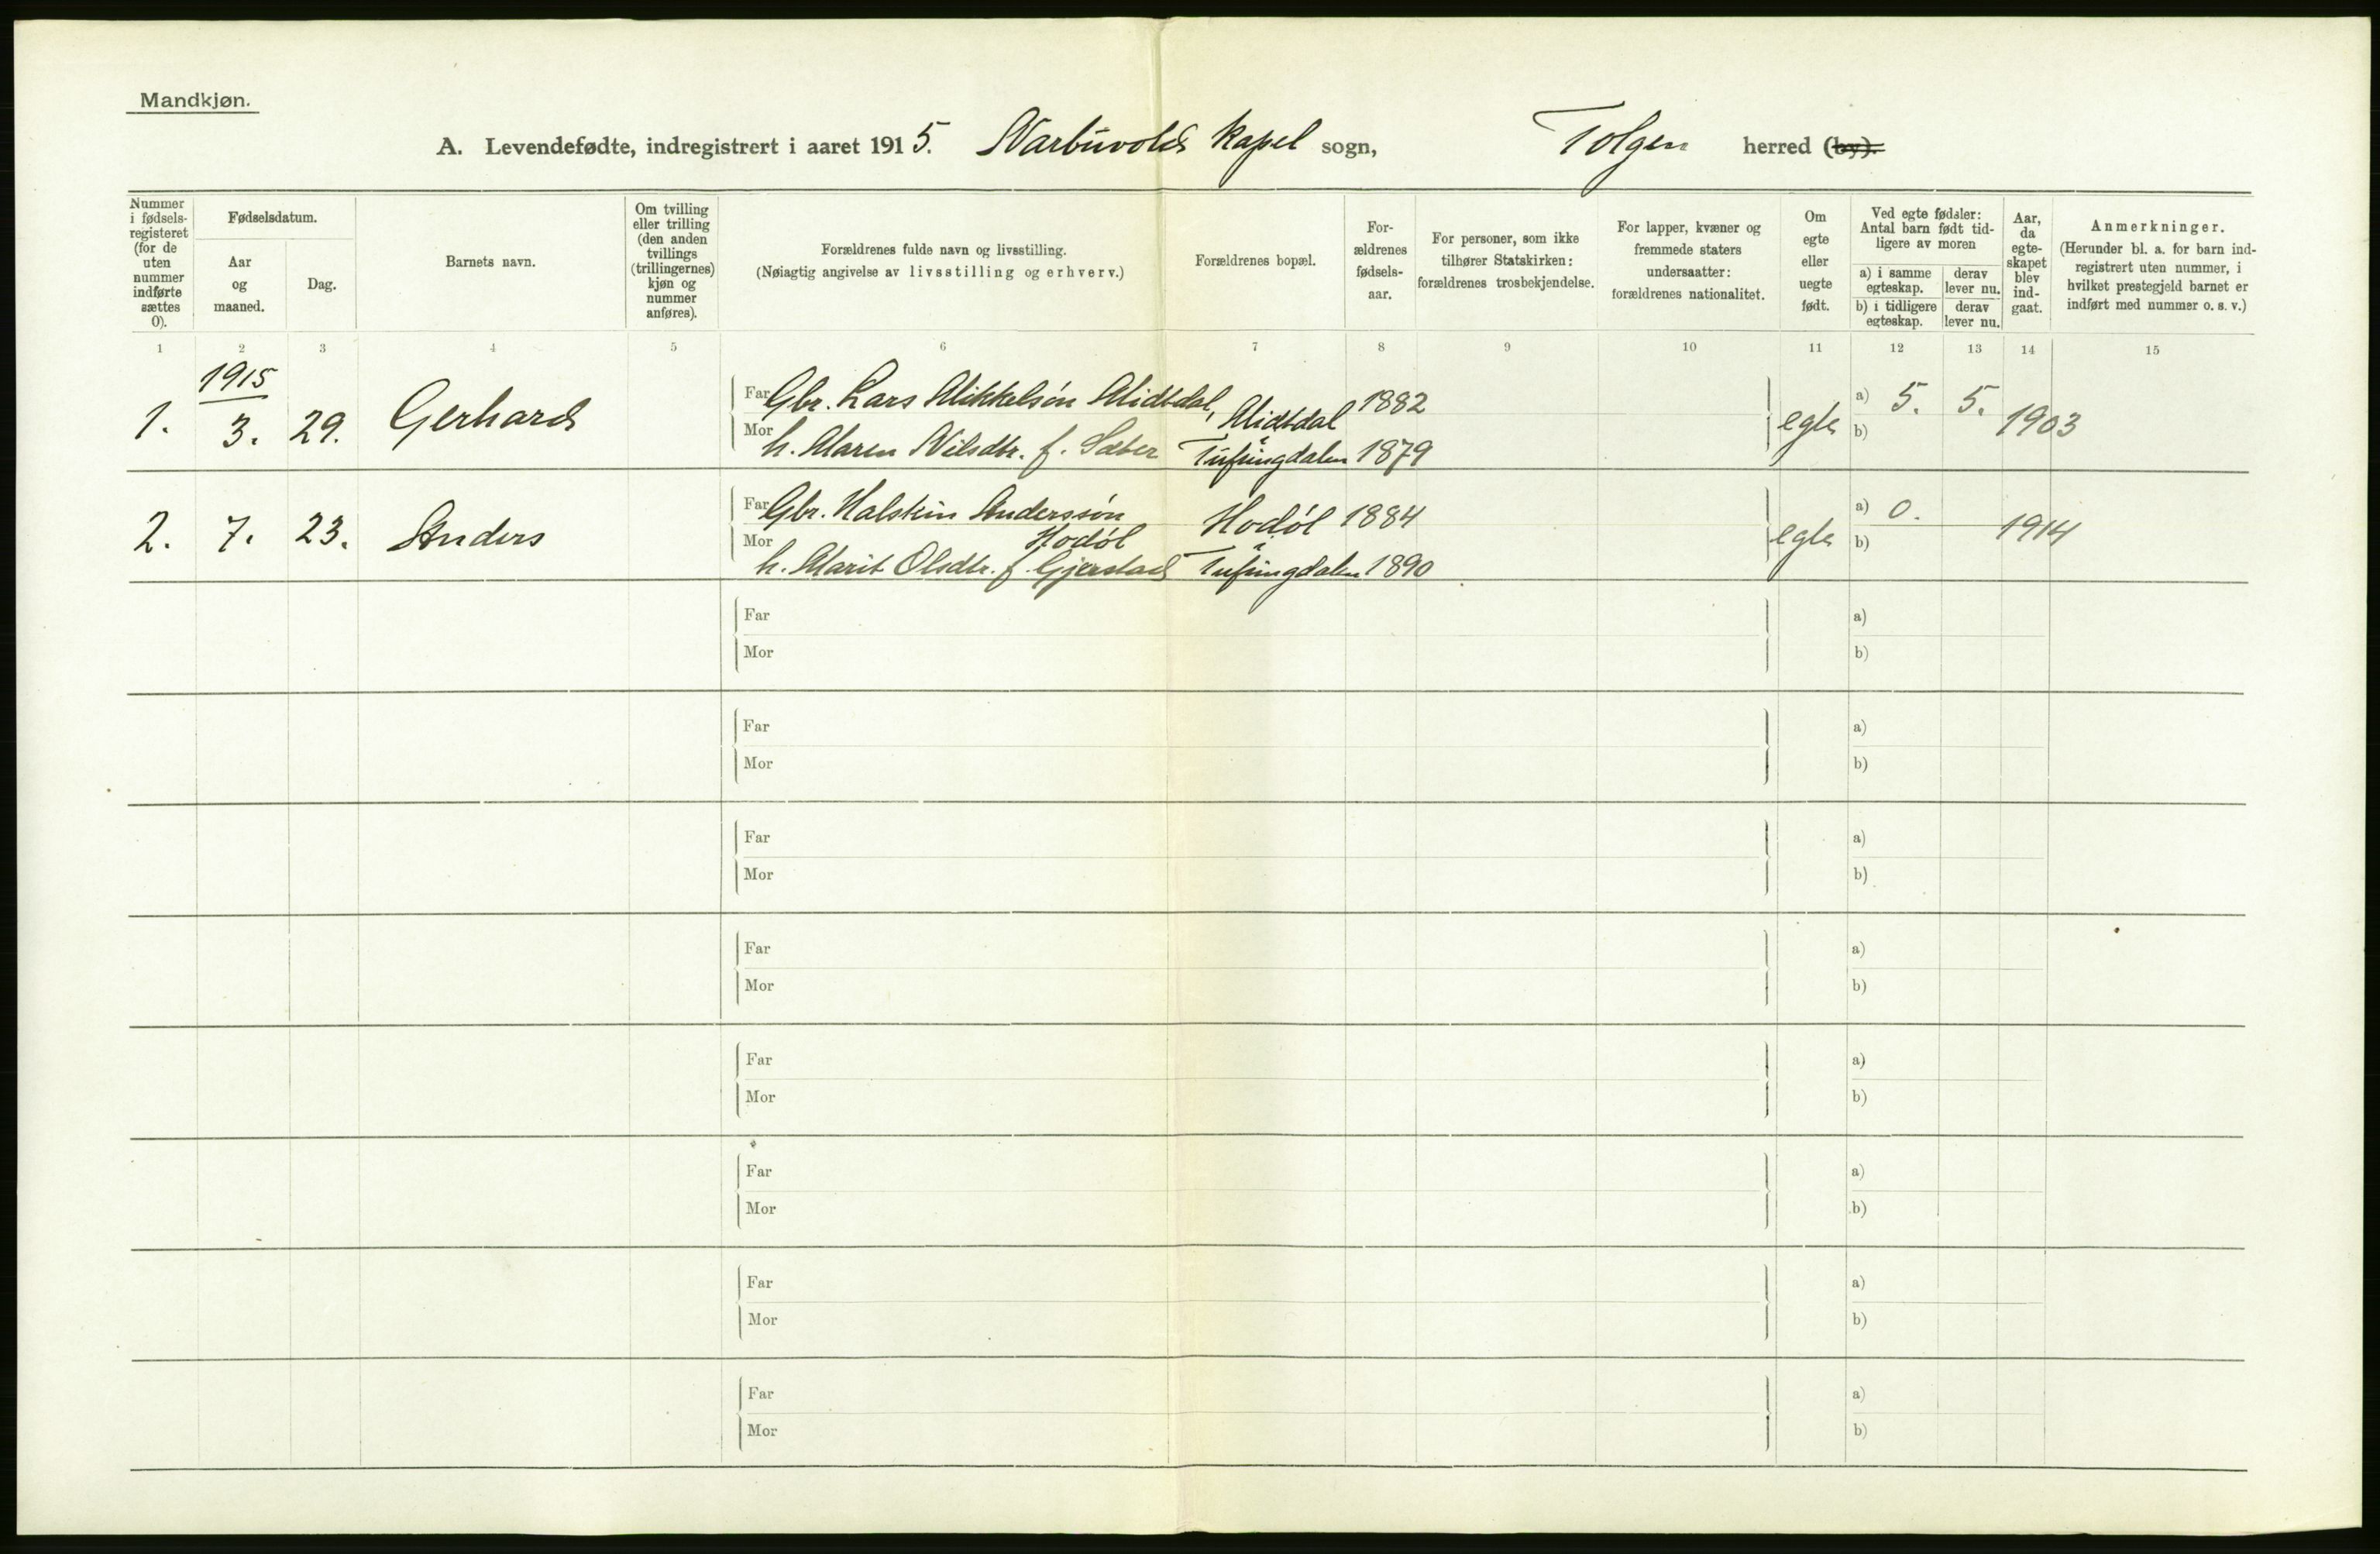 Mandkjøn.
A. Levendefødte, indregistrert i aaret 1915. Narbuvolds Kapel sogn, Tolgen herred (by).
Nummer i fødsels-registeret (for de uten nummer indførte sættes 0).
Fødselsdatum.
Aar og maaned.
Dag.
Barnets navn.
Om tvilling eller trilling (den anden tvillings (trillingernes) kjøn og nummer anføres).
Forældrenes fulde navn og livsstilling.
(Nøiagtig angivelse av livsstilling og erhverv.)
Forældrenes bopæl.
For-ældrenes fødsels-aar.
For personer, som ikke tilhører Statskirken: forældrenes trosbekjendelse.
For lapper, kvæner og fremmede staters undersaatter: forældrenes nationalitet.
Om egte eller uegte født.
Ved egte fødsler: Antal barn født tid-ligere av moren
a) i samme egteskap.
derav lever nu.
b) i tidligere egteskap.
derav lever nu.
Aar, da egte-skapet blev ind-gaat.
Anmerkninger.
(Herunder bl. a. for barn ind-registrert uten nummer, i hvilket prestegjeld barnet er indført med nummer o. s. v.)
1 2 3 4 5 6 7 8 9 10 11 12 13 14 15
1915
1. 3. 29. Gerhard
Far Gbr. Lars Mikkelsøn Midtdal, Midtdal 1882
Mor h. Maren Nilsdtr. f. Sæter i Tufsingdalen 1879
egte a) 5. 5. b) 1903
2. 7. 23. Anders
Far Gbr. Halstein Anderssøn Hodøl Hodøl 1884
Mor h. Marit Olsdtr. f. Gjerstad i Tufsingdalen 1890
egte a) 0. b) 1914
Far a)
Mor b)
Far a)
Mor b)
Far a)
Mor b)
Far a)
Mor b)
Far a)
Mor b)
Far a)
Mor b)
Far a)
Mor b)
Far a)
Mor b)